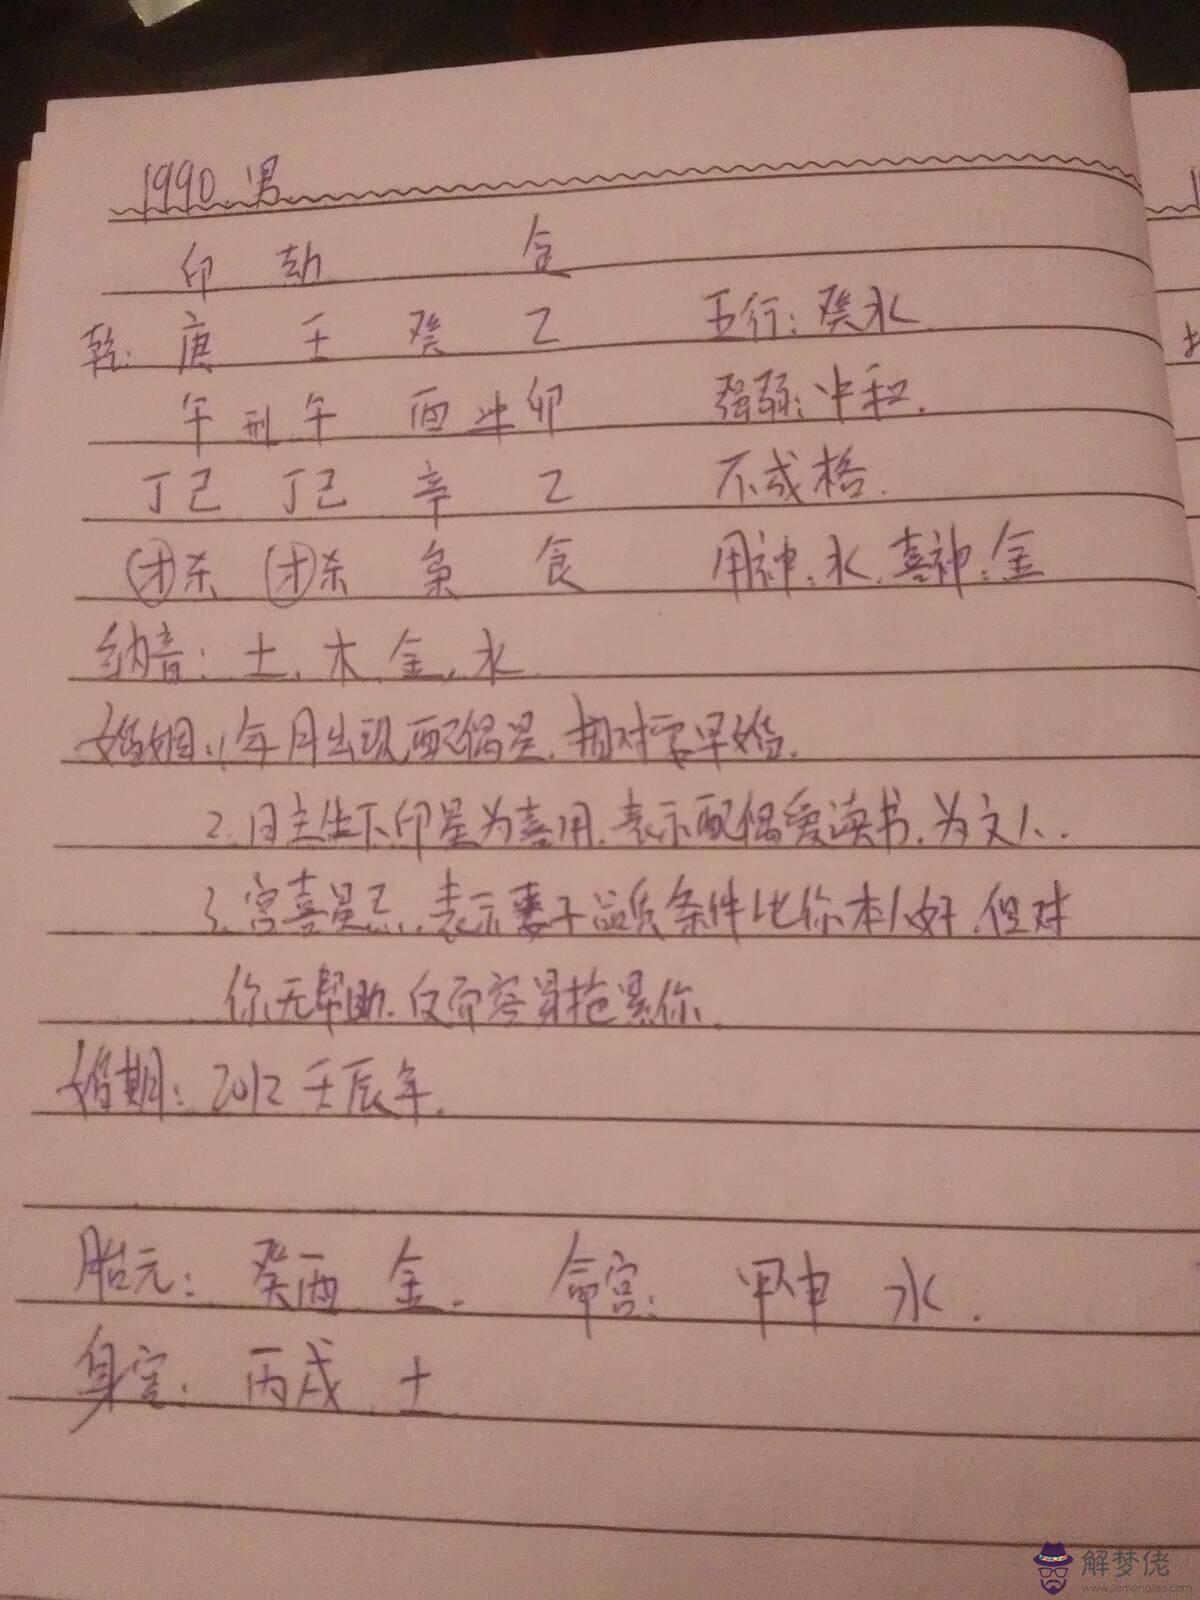 1990. 男
印 劫 食
乾: 庚 壬 癸 乙 五行: 癸水
午 刑 午 酉 冲 卯 强弱: 中和.
丁己 丁己 辛 乙 不成格.
才杀 才杀 枭 食 用神: 水. 喜神: 金
纳音: 土. 木. 金. 水
婚姻: 1, 年月出现配偶星. 相对会早婚.
2. 日主坐下印星为喜用. 表示配偶爱读书. 为文人.
3. 宫喜星忌.. 表示妻子品质条件比你本人好. 但对
你无帮助. 反而容易拖累你
婚期: 2012 壬辰年.
胎元: 癸酉 金. 命宫: 甲申 水.
身宫: 丙戌 土
解梦佬
www.jiemenglao.com